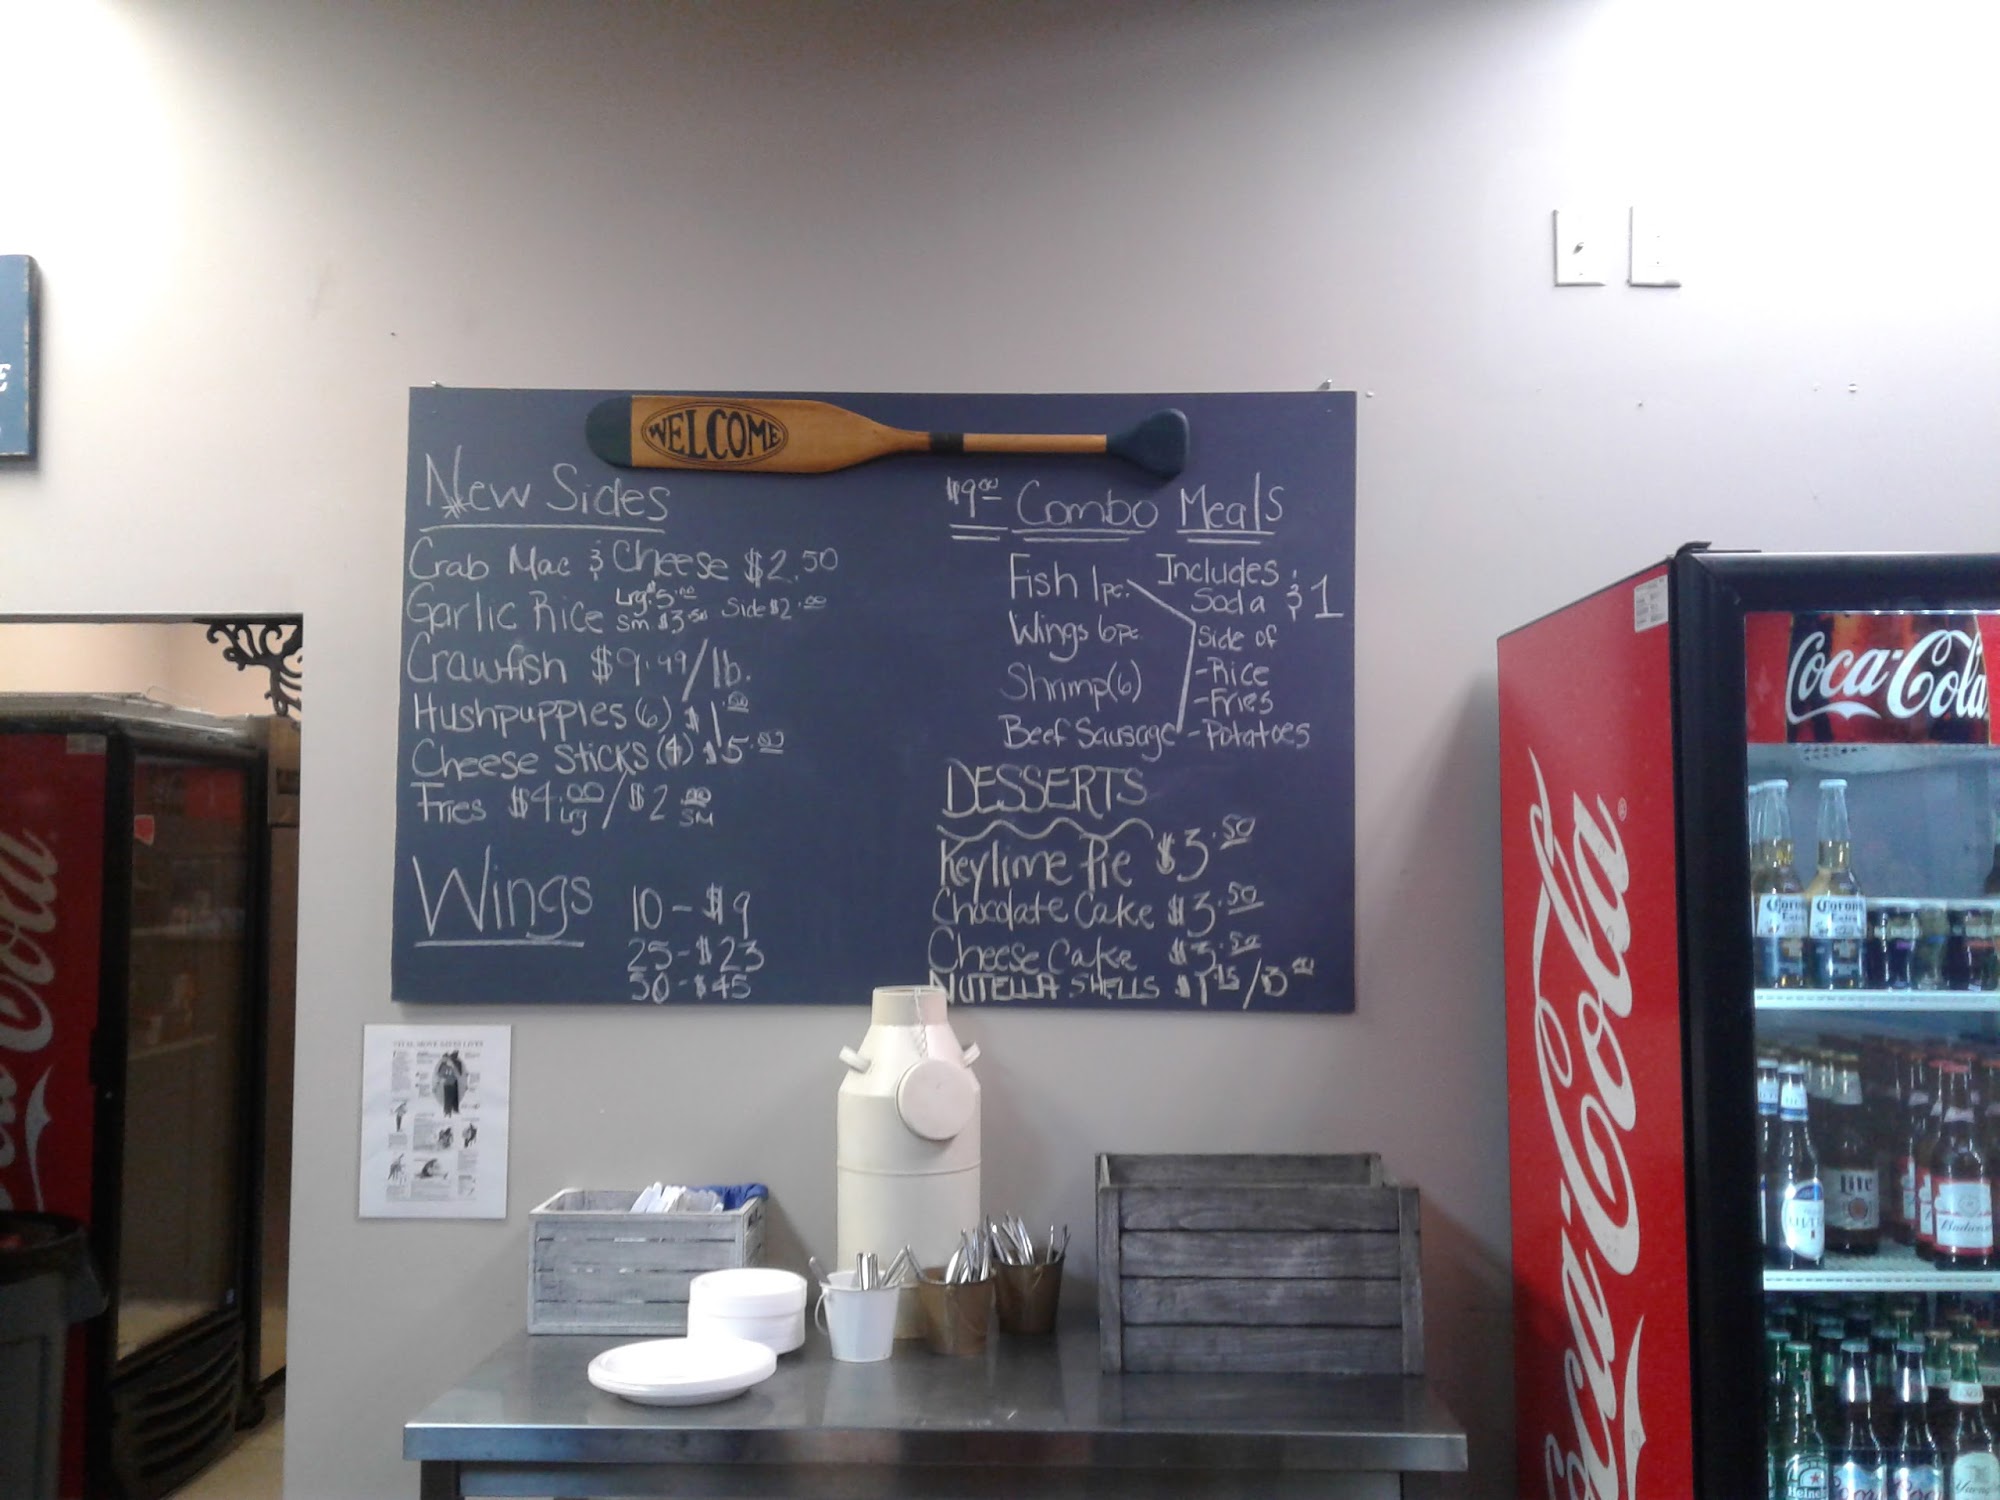 WELCOME
New Sides
Crab Mac & Cheese $2.50
Garlic Rice Lrg. $5.00 Sm. $3.50 Side $2.00
Crawfish $9.99/lb.
Hushpuppies (6) $1.50
Cheese Sticks (4) $5.00
Fries $4.00 Lrg / $2.00 SM
Wings 10 - $9
25 - $23
50 - $45
$9.00 Combo Meals
Fish 1pc.
Wings 6pc
Shrimp (6)
Beef Sausage
Includes:
Soda & 1
Side of
- Rice
- Fries
- Potatoes
DESSERTS
Keylime Pie $3.50
Chocolate Cake $3.50
Cheese Cake $3.50
NUTELLA SHELLS $1.75/3.00
Coca-Cola
Coca-Cola
Corona Extra
Corona Extra
Lite
Budweiser
Heineken